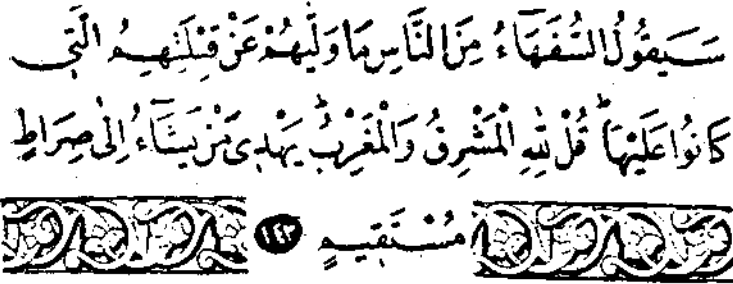 سَيَقُولُ السُّفَهَٓاءُ مِنَ النَّاسِ مَا وَلّٰيهُمْ عَنْ قِبْلَتِهِمُ الَّتٖى
كَانُوا عَلَيْهَاؕ قُلْ لِلّٰهِ الْمَشْرِقُ وَالْمَغْرِبُؕ يَهْدٖى مَنْ يَشَٓاءُ اِلٰى صِرَاطٍ
مُسْتَقٖيمٍ ١٤٢